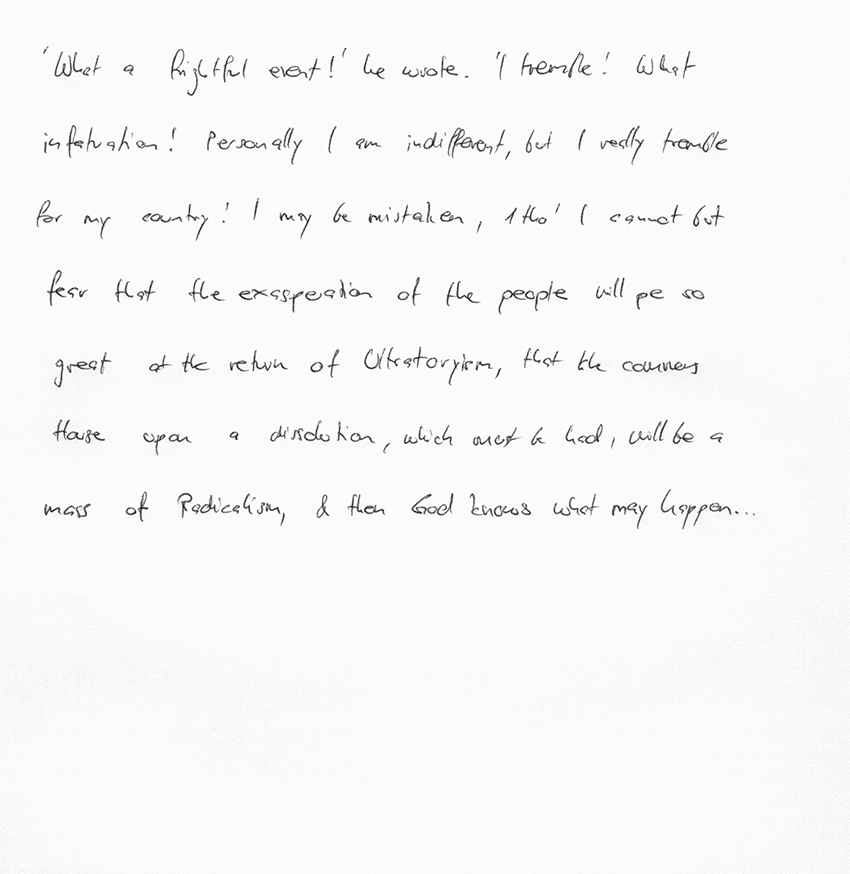 'What a frightful event!' he wrote. 'I tremble! What
infatuation! Personally I am indifferent, but I really tremble
for my country! I may be mistaken, tho' I cannot but
fear that the exasperation of the people will pe so
great at the return of Ultratoryism, that the commons
House upon a dissolution, which must be had, will be a
mass of Radicalism, & then God knows what may happen...